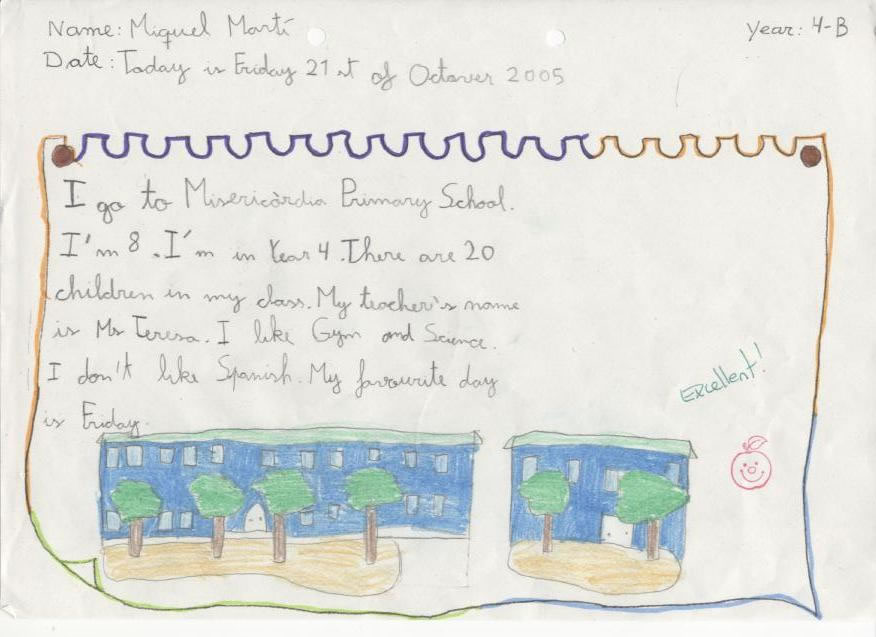 Name: Miquel Martí
Year: 4-B
Date: Today is Friday 21st of Octover 2005
I go to Misericòrdia Primary School.
I'm 8. I'm in Year 4. There are 20
children in my class. My teacher's name
is Ms Teresa. I like Gym and Science.
I don't like Spanish. My favourite day
is Friday.
Excellent!